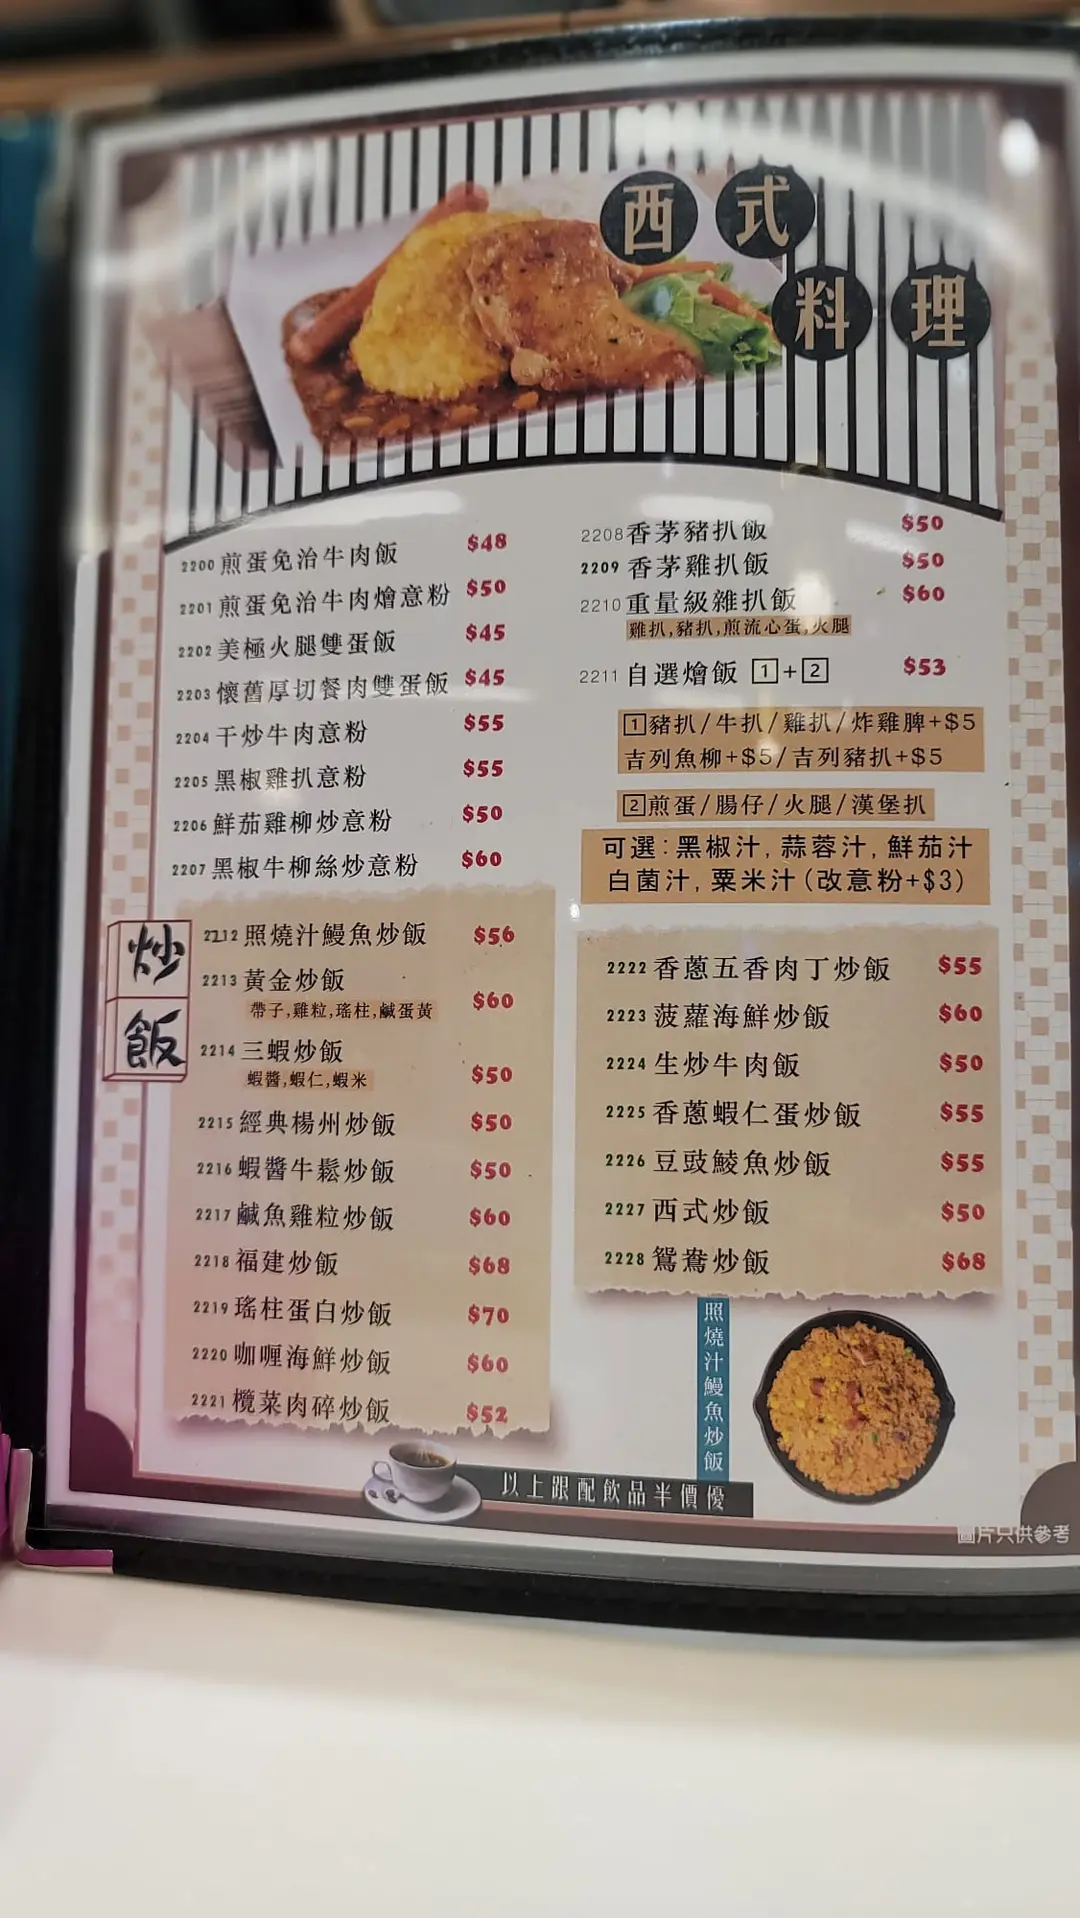 西式
料理
2200 煎蛋免治牛肉飯 $48
2201 煎蛋免治牛肉燴意粉 $50
2202 美極火腿雙蛋飯 $45
2203 懷舊厚切餐肉雙蛋飯 $45
2204 干炒牛肉意粉 $55
2205 黑椒雞扒意粉 $55
2206 鮮茄雞柳炒意粉 $50
2207 黑椒牛柳絲炒意粉 $60
2208 香茅豬扒飯 $50
2209 香茅雞扒飯 $50
2210 重量級雜扒飯 $60
雞扒,豬扒,煎流心蛋,火腿
2211 自選燴飯 1+2 $53
1豬扒/牛扒/雞扒/炸雞脾+$5
吉列魚柳+$5/吉列豬扒+$5
2煎蛋/腸仔/火腿/漢堡扒
可選:黑椒汁,蒜蓉汁,鮮茄汁
白菌汁,粟米汁(改意粉+$3)
炒飯
2212 照燒汁鰻魚炒飯 $56
2213 黃金炒飯 $60
帶子,雞粒,瑤柱,鹹蛋黃
2214 三蝦炒飯 $50
蝦醬,蝦仁,蝦米
2215 經典楊州炒飯 $50
2216 蝦醬牛鬆炒飯 $50
2217 鹹魚雞粒炒飯 $60
2218 福建炒飯 $68
2219 瑤柱蛋白炒飯 $70
2220 咖喱海鮮炒飯 $60
2221 欖菜肉碎炒飯 $52
2222 香蔥五香肉丁炒飯 $55
2223 菠蘿海鮮炒飯 $60
2224 生炒牛肉飯 $50
2225 香蔥蝦仁蛋炒飯 $55
2226 豆豉鯪魚炒飯 $55
2227 西式炒飯 $50
2228 鴛鴦炒飯 $68
照燒汁鰻魚炒飯
以上跟配飲品半價優
圖片只供參考